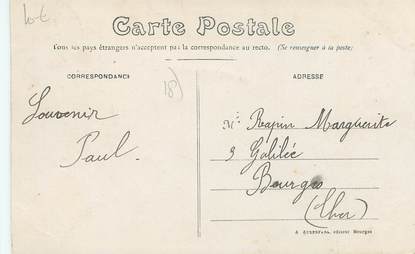 10€
Carte Postale
Tous les pays étrangers n'acceptent pas la correspondance au recto. (Se renseigner à la poste)
CORRESPONDANCE
18)
ADRESSE
Souvenir
Paul.
Mlle Rapin Marguerite
9 Galilée
Bourges
(Cher)
éditeur Bourges